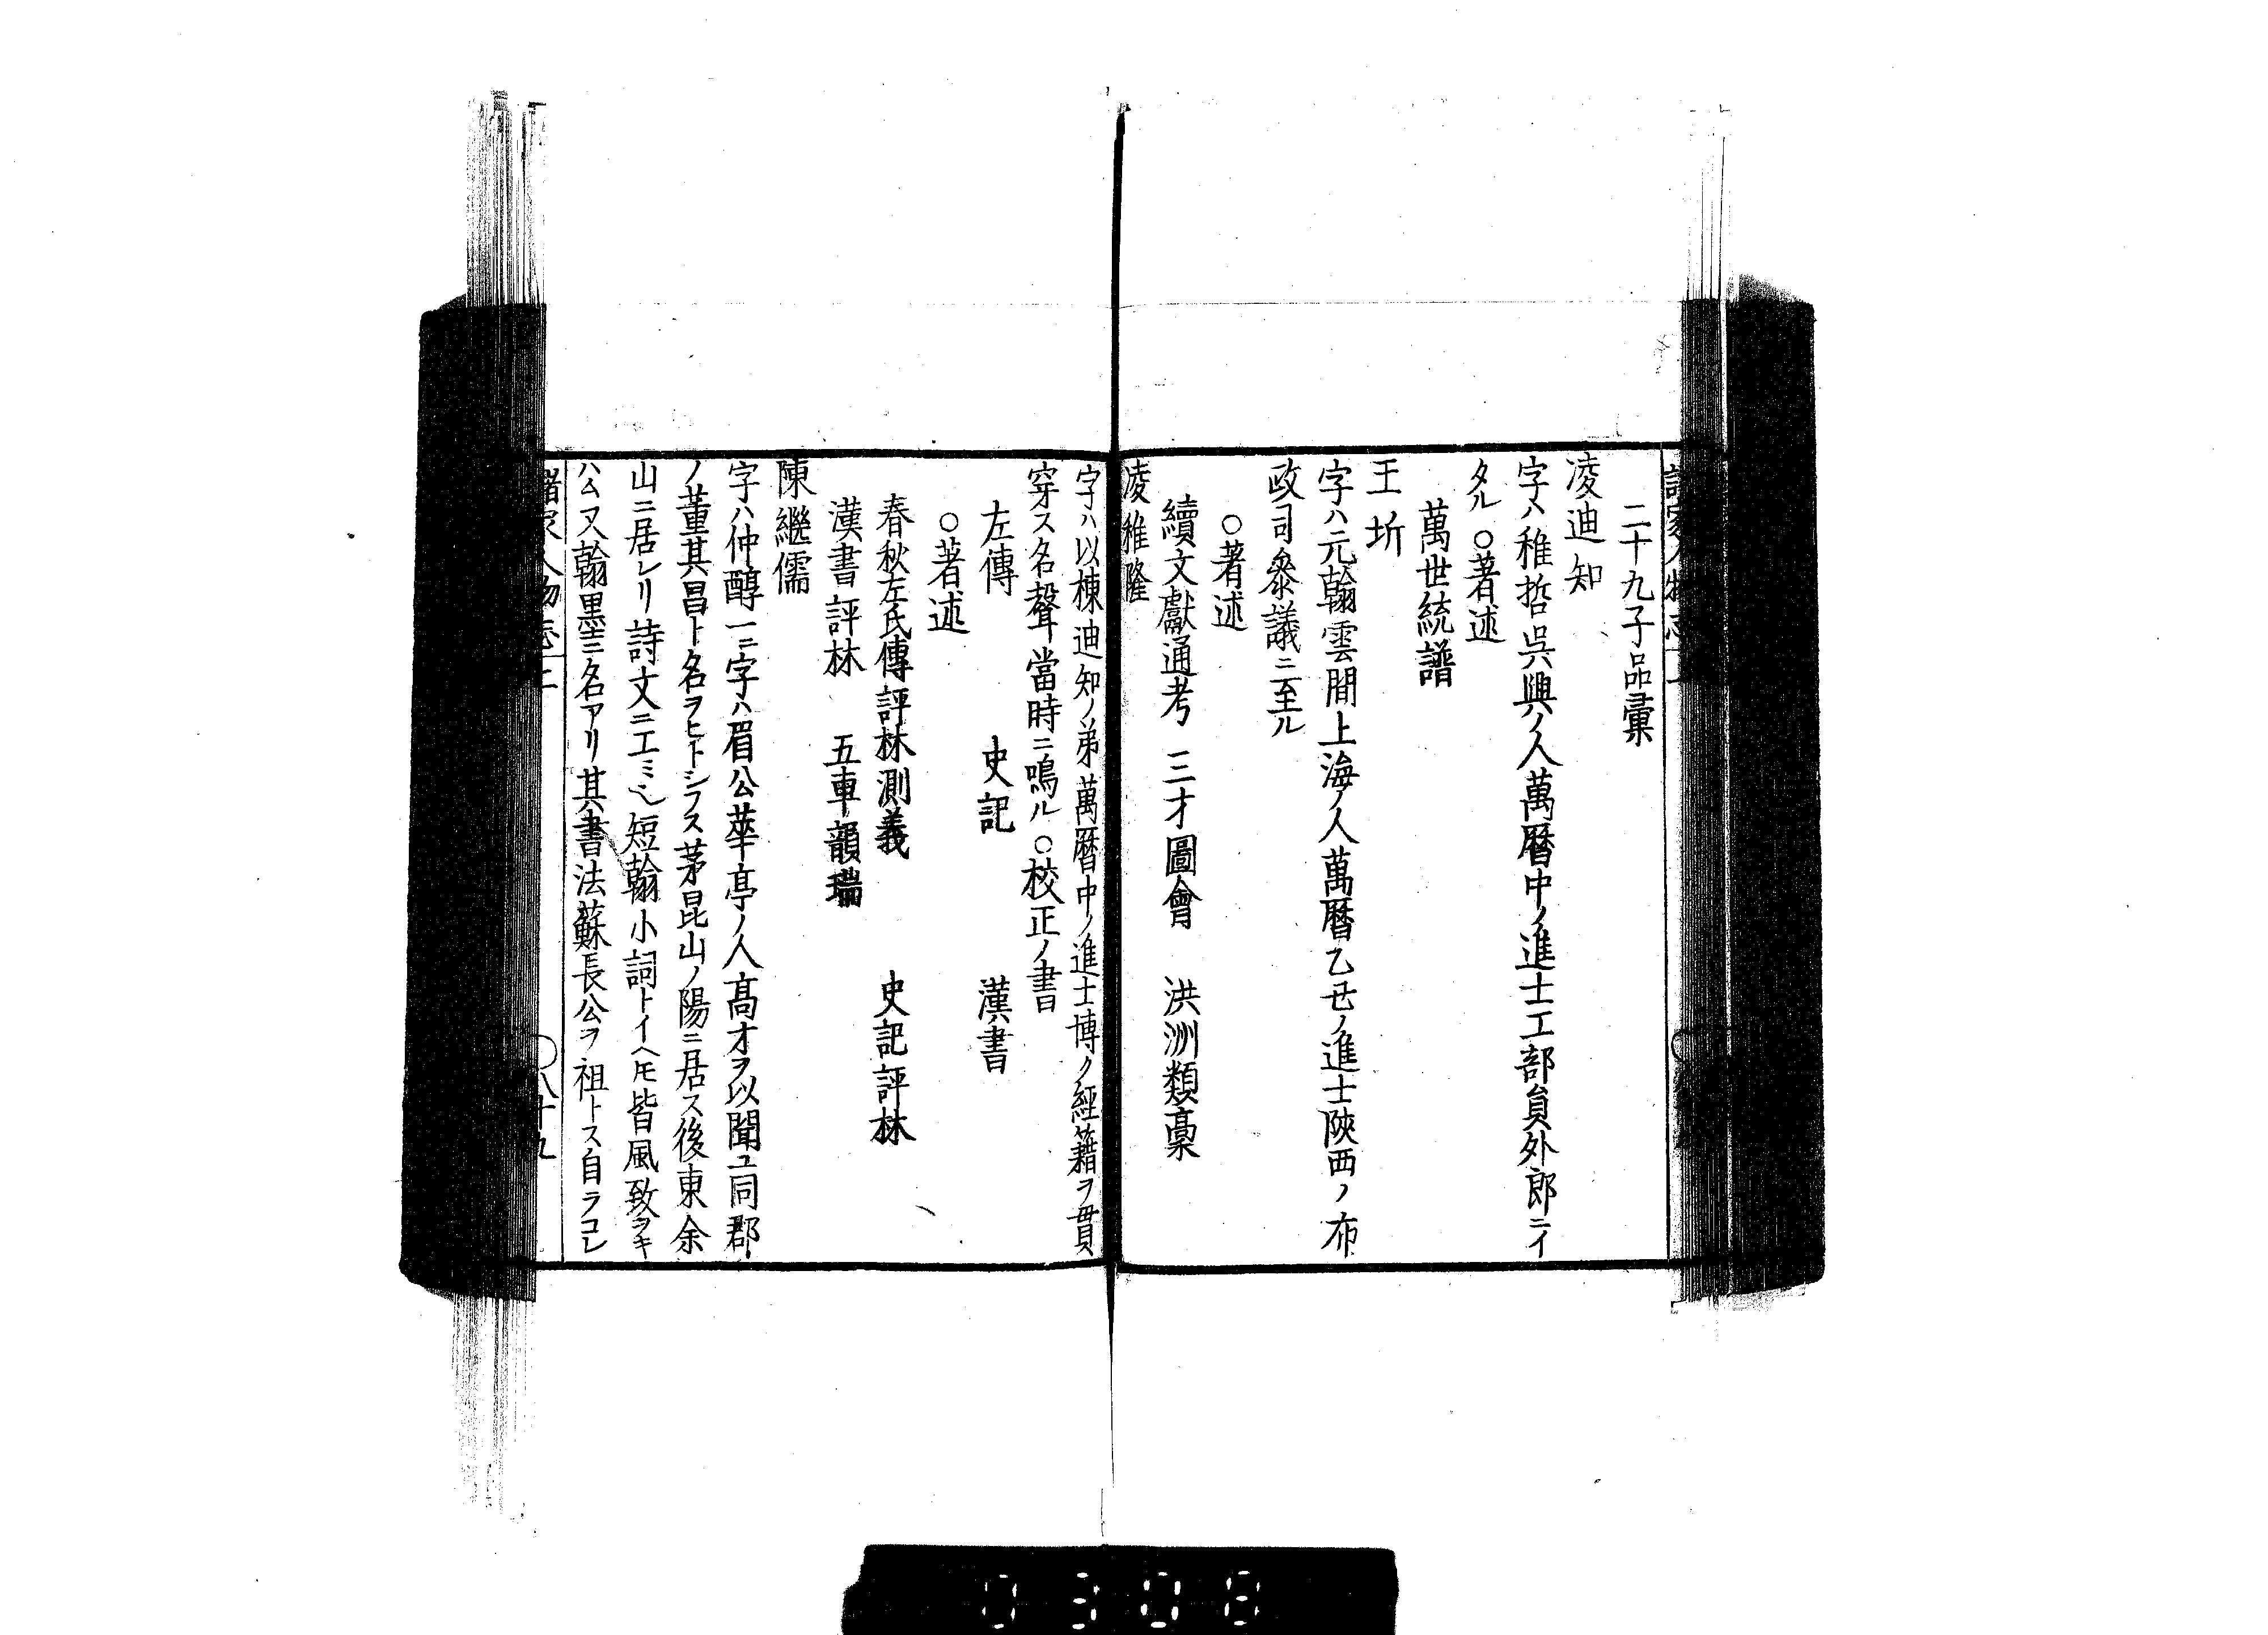 二十九子品彙
凌迪知
字ハ稚哲呉興ノ人萬暦中ノ進士工部員外郎ニイ
タル○著述
萬世統譜
王圻
字ハ元翰雲間上海ノ人萬暦乙丑ノ進士陝西ノ布
政司叅議ニ至ル
○著述
續文獻通考 三才圖會 洪洲類稾
凌稚隆
字ハ以棟迪知ノ弟萬暦中ノ進士博ク經籍ヲ貫
穿ス名聲當時ニ鳴ル○校正ノ書
左傳 史記 漢書
○著述
春秋左氏傳評林測義 史記評林
漢書評林 五車韻瑞
陳繼儒
字ハ仲醇一ニ字ハ眉公華亭ノ人髙才ヲ以聞ユ同郡
ノ董其昌ト名ヲヒトシフス茅昆山ノ陽ニ居ス後東余
山ニ居レリ詩文ニ工ミニ短翰小詞トイヘ𪜈皆風致ヲキ
ハム又翰墨ニ名アリ其書法蘇長公ヲ祖トス自ラコレ
諸家人物志二
〇八十九
0308